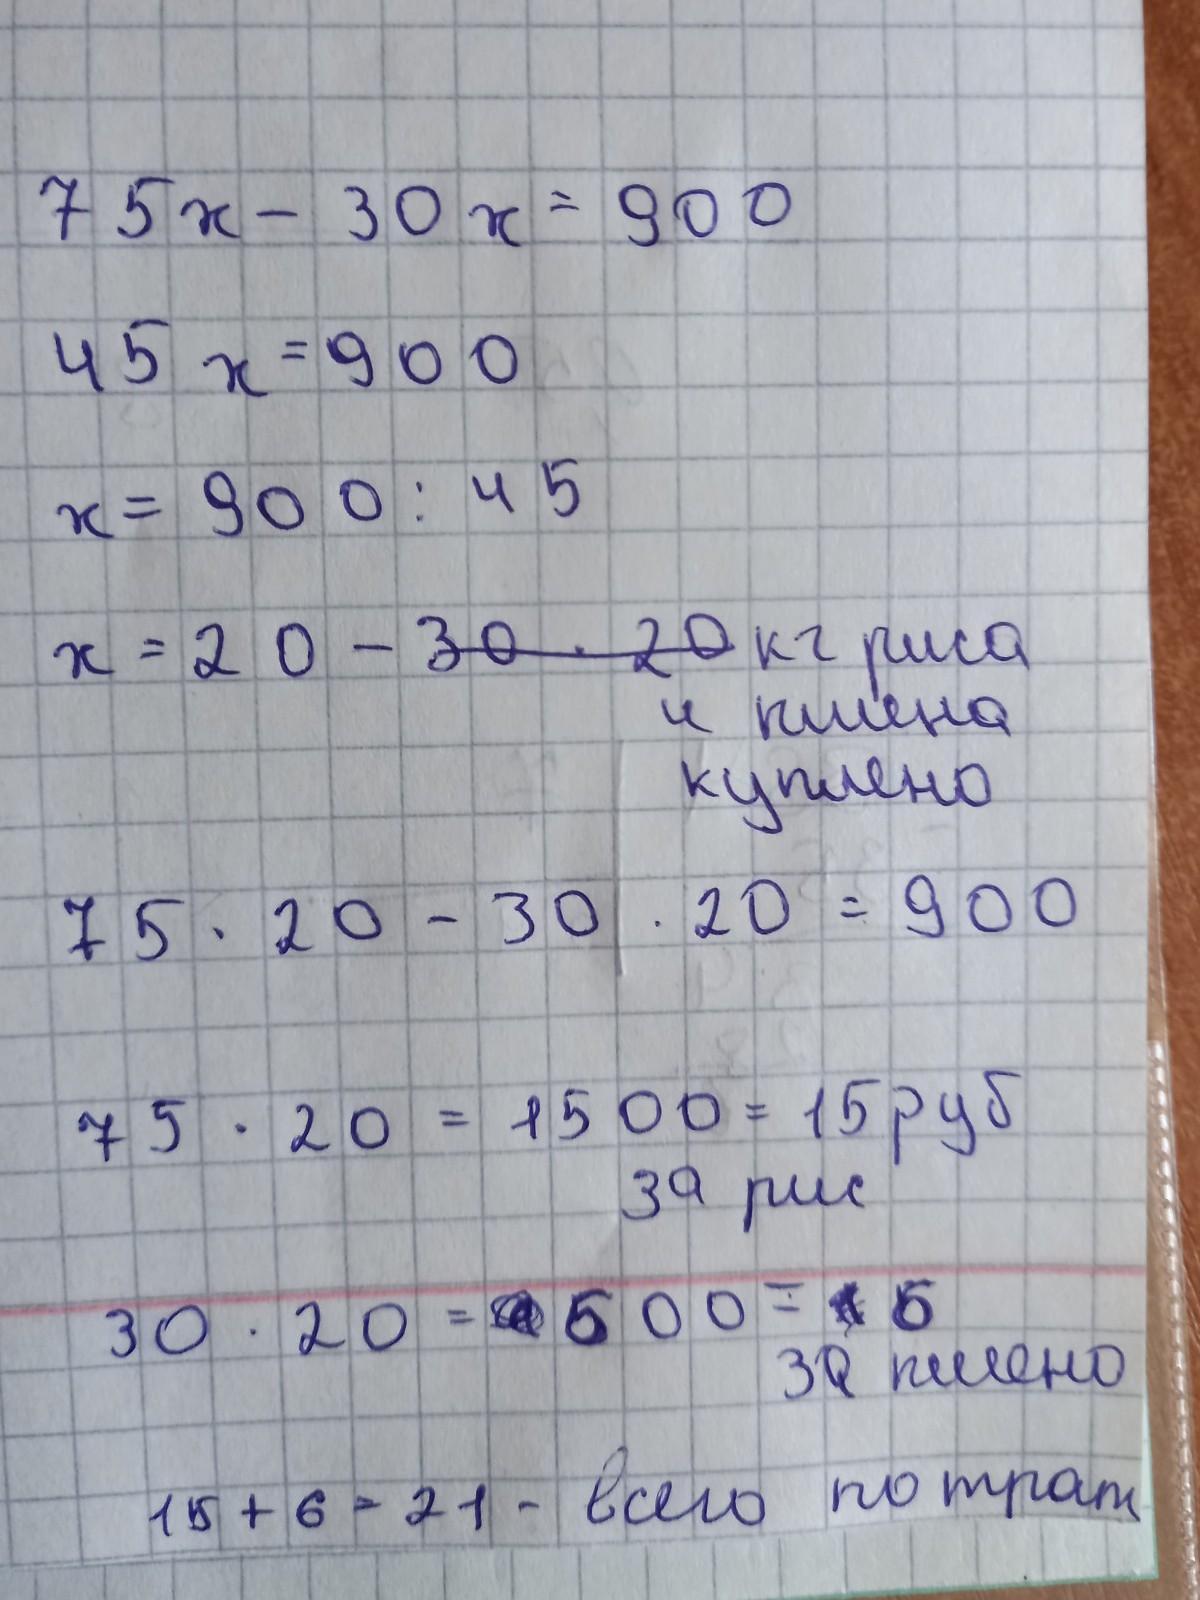 75х - 30х = 900
45х = 900
х = 900 : 45
х = 20 - 30 · 20 кг риса
и пшена
куплено
75 · 20 - 30 · 20 = 900
75 · 20 = 1500 = 15 руб
за рис
30 · 20 = 600 = 6
за пшено
15 + 6 = 21 - всего потрат